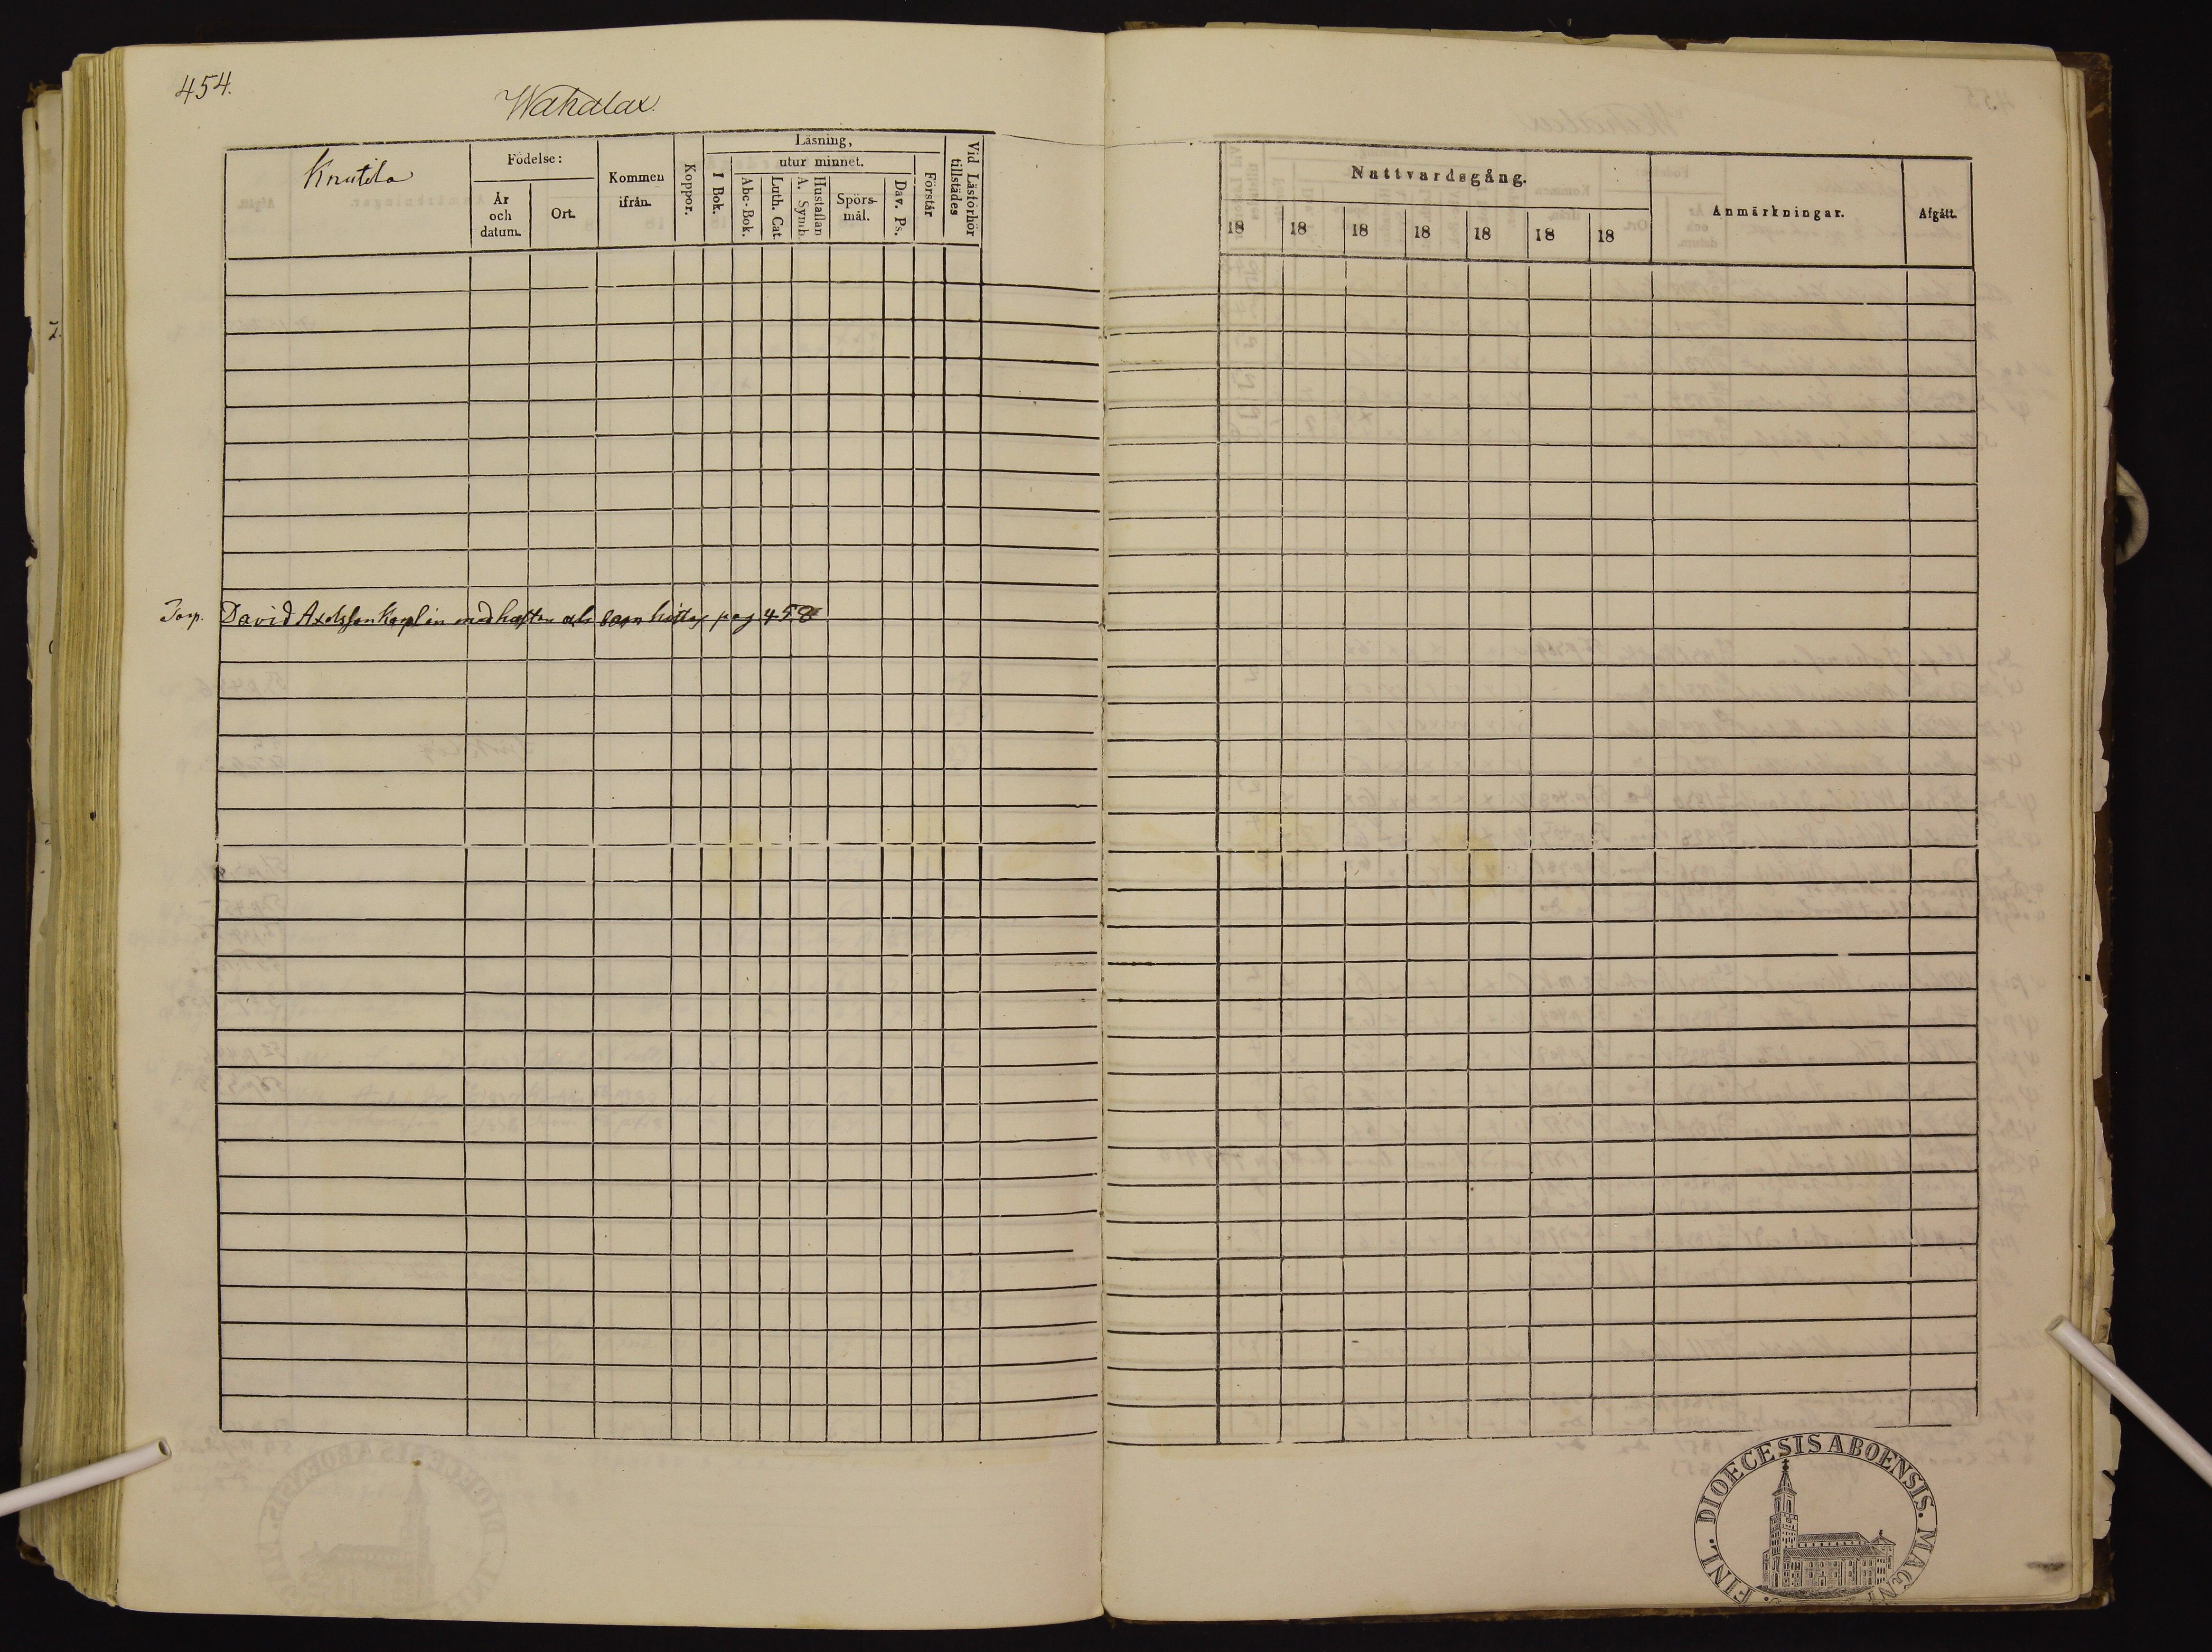 454.
Wahdlax.
Knutila
Födelse:
År
och
datum.
Ort.
Kommen
ifrån.
Koppor.
Läsning,
I Bok.
utur minnet.
Abc-Bok.
Luth. Cat.
Hustaflan
A. Symb.
Spörs-
mål.
Dav. Ps.
Förstår
Vid Läsförhör
tillstädes
Torp. David Axelsson Karplin med hustru och barn hittas pag 458
Nattvardsgång.
18 18 18 18 18 18 18
Anmärkningar.
Afgått.
FINL. DIOECESIS ABOENSIS. MAGNI